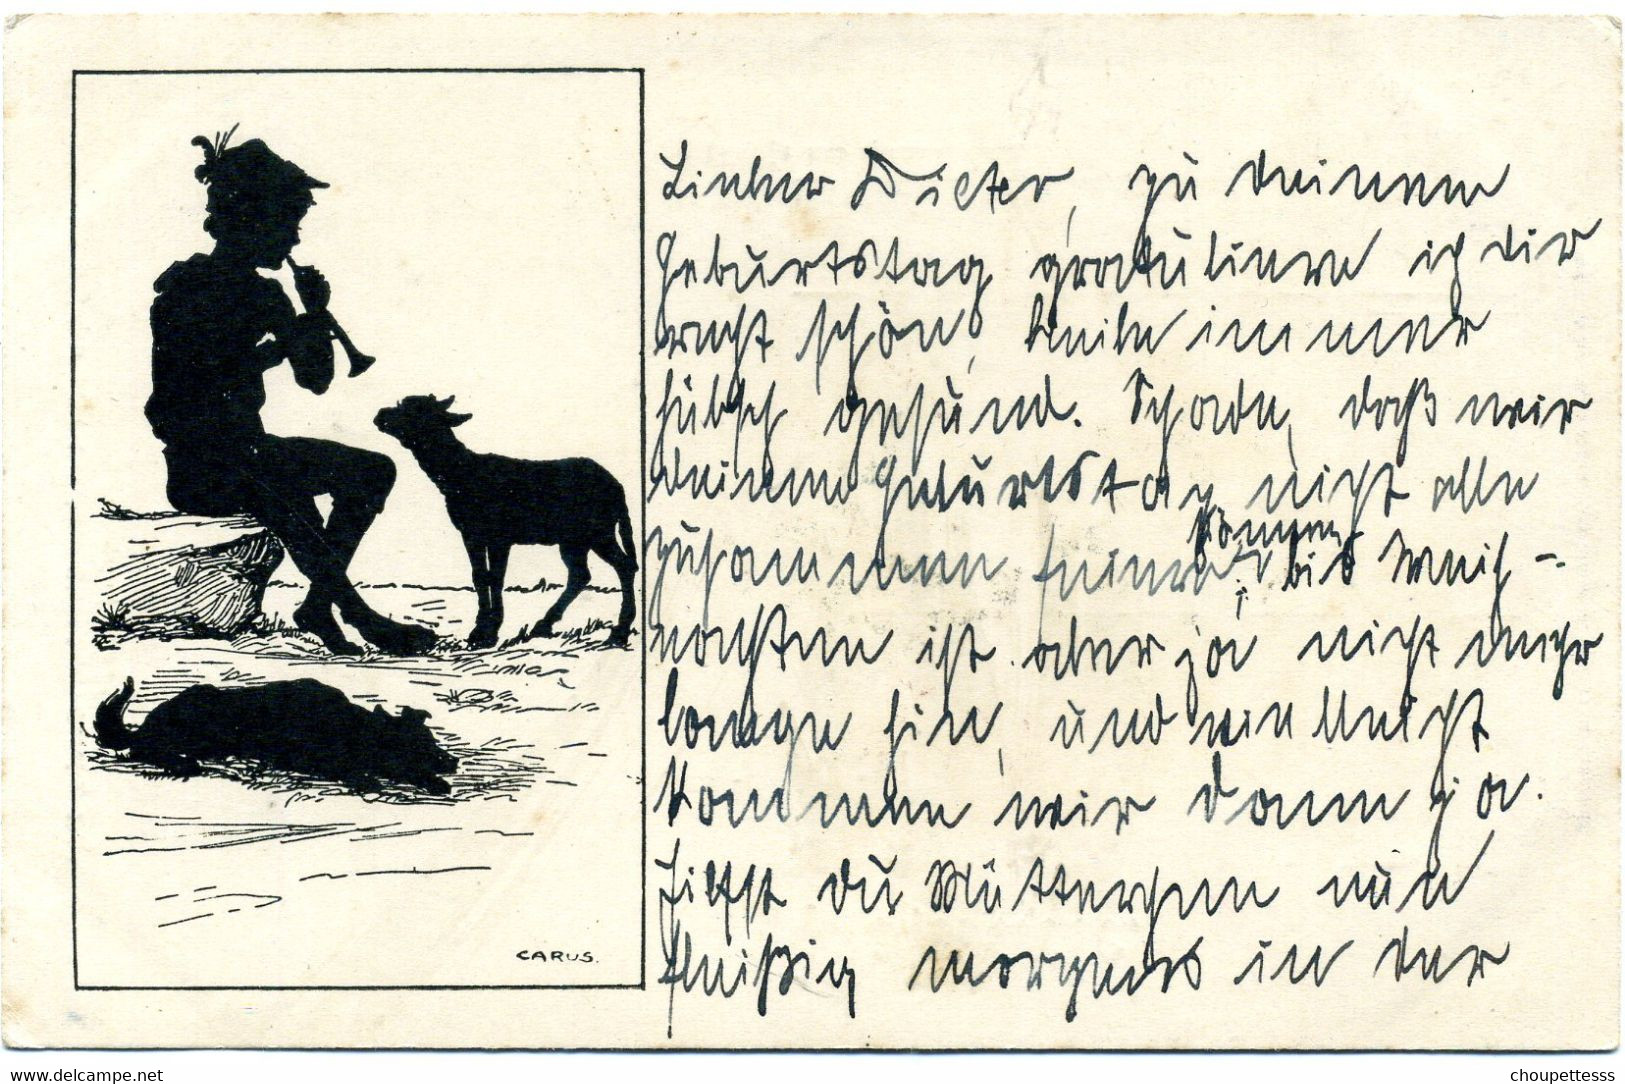 Lieber Dieter, zu deinem
Geburtstag gratuliere ich dir
recht schön, bleibe immer
hübsch gesund. Schade, daß wir
deinen Geburtstag nicht alle
können
zusammen feiern, bis Weih-
nachten ist aber ja nicht mehr
lange hin, und vielleicht
kommen wir dann ja.
Hilfst du Mütterchen nun
fleißig morgens in der
CARUS.
www.delcampe.net
choupettesss